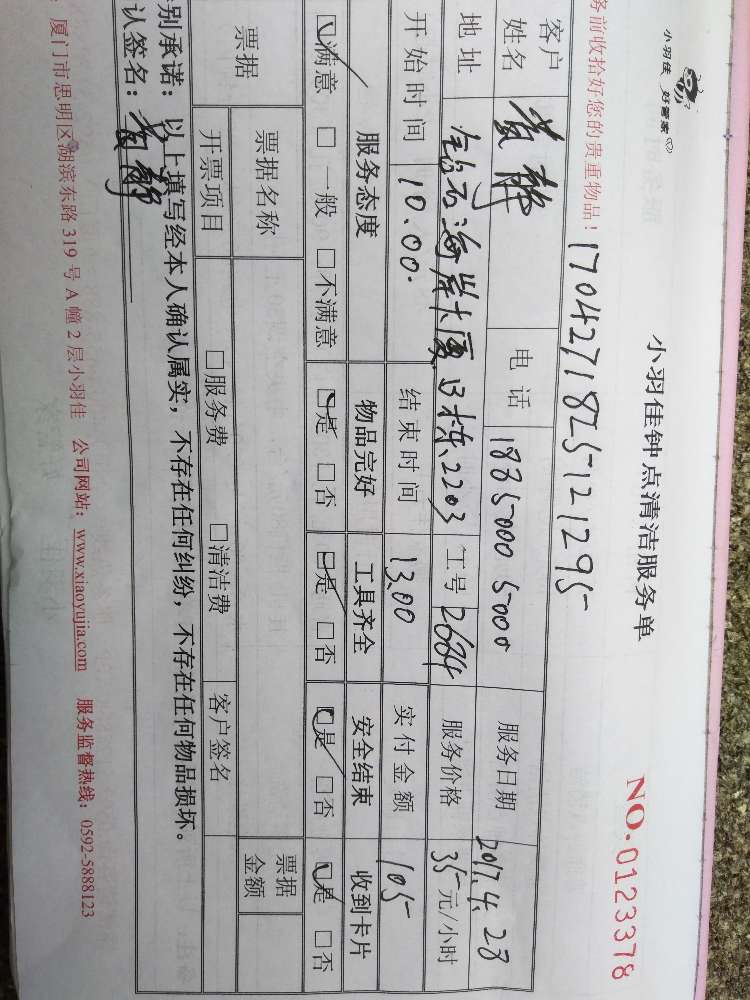 小羽佳 好管家
小羽佳钟点清洁服务单
NO.0123378
务前收拾好您的贵重物品! 170427182512129 5
客户姓名 黄静 电话 18850005000 服务日期 2017.4.28
地址 钻石海岸大厦B栋2203 工号 2684 服务价格 35元/小时
开始时间 10.00. 结束时间 13.00 实付金额 105
服务态度 物品完好 工具齐全 安全结束 收到卡片
☑满意 □一般 □不满意 ☑是 □否 ☑是 □否 ☑是 □否 ☑是 □否
票据 票据名称 票据金额
开票项目 □服务费 □清洁费 客户签名
别承诺:以上填写经本人确认属实,不存在任何纠纷,不存在任何物品损坏。
认签名:黄静
:厦门市思明区湖滨东路319号A幢2层小羽佳 公司网站:www.xiaoyujia.com 服务监督热线:0592-5888123